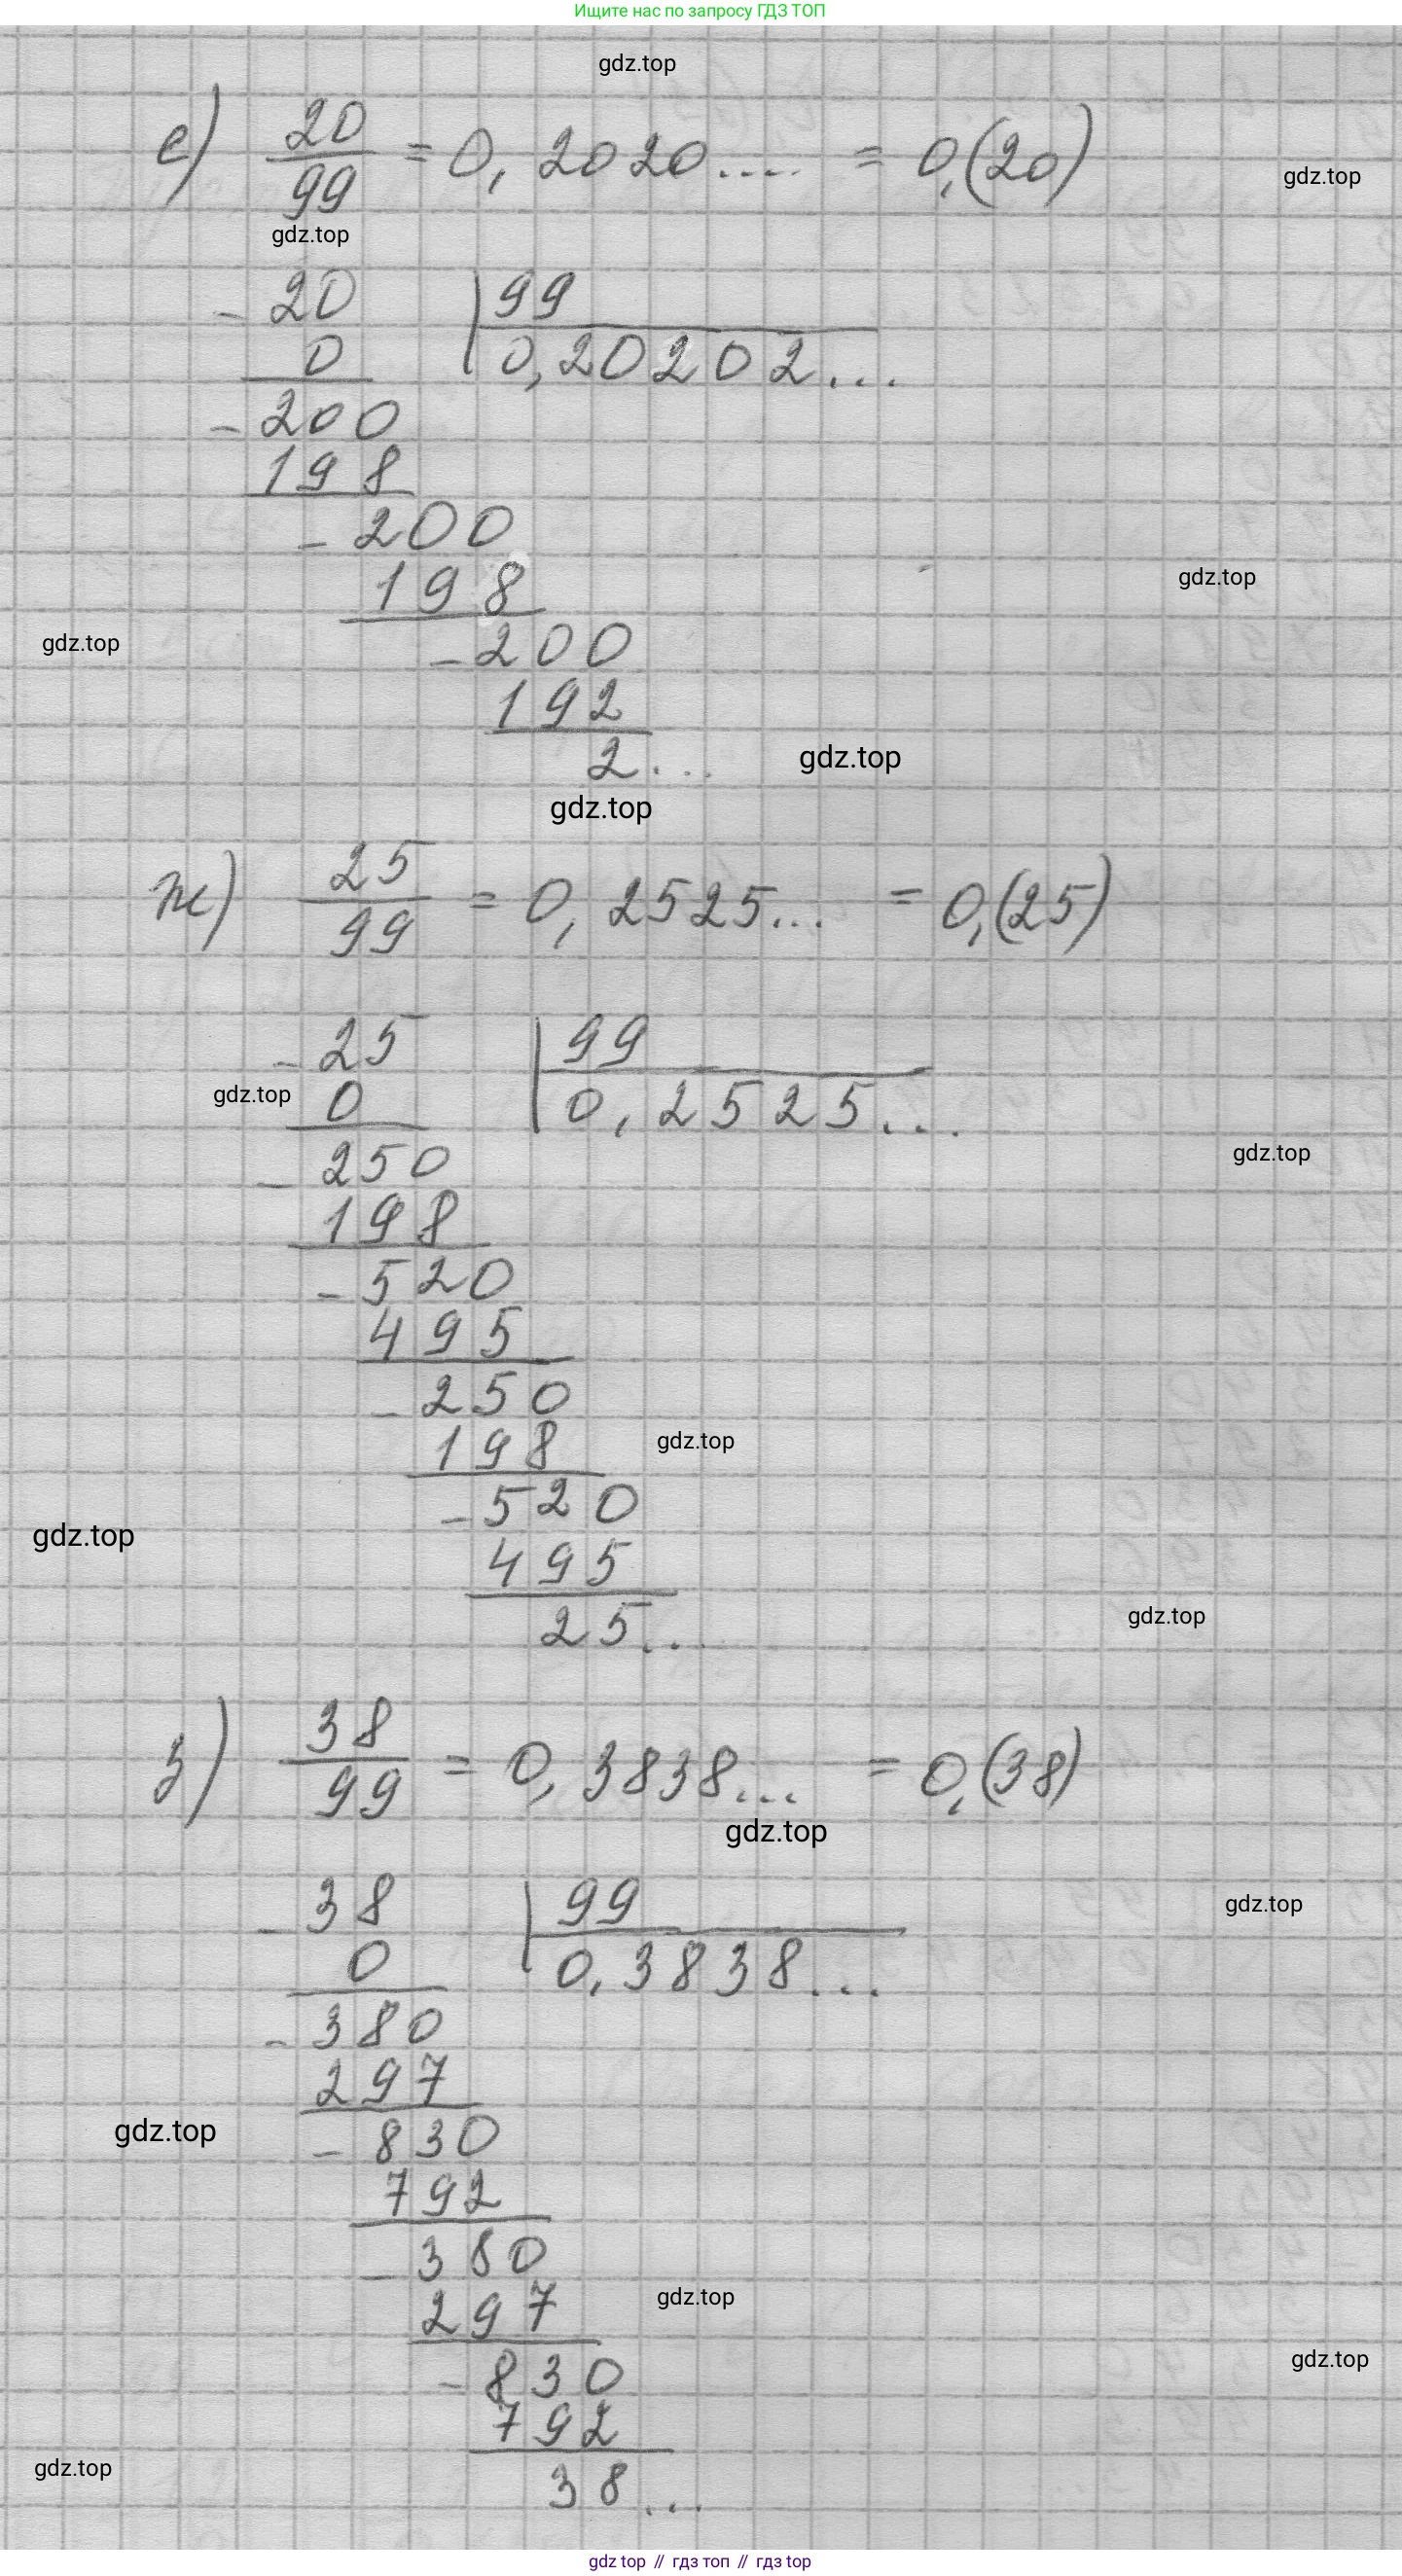 Ищите нас по запросу ГДЗ ТОП
gdz.top
е) 20/99 = 0,2020.... = 0,(20)
gdz.top
gdz.top
- 20 | 99
0 | 0,20202...
- 200
198
- 200
198
gdz.top
gdz.top
- 200
192
2...
gdz.top
gdz.top
ж) 25/99 = 0,2525... = 0,(25)
- 25 | 99
gdz.top
0 | 0,2525...
gdz.top
- 250
198
- 520
495
- 250
198
gdz.top
- 520
gdz.top
495
gdz.top
25...
з) 38/99 = 0,3838... = 0,(38)
gdz.top
- 38 | 99
gdz.top
0 | 0,3838...
- 380
297
gdz.top
- 830
792
- 380
297
gdz.top
- 830
gdz.top
792
gdz.top
38...
gdz top // гдз топ // гдз top